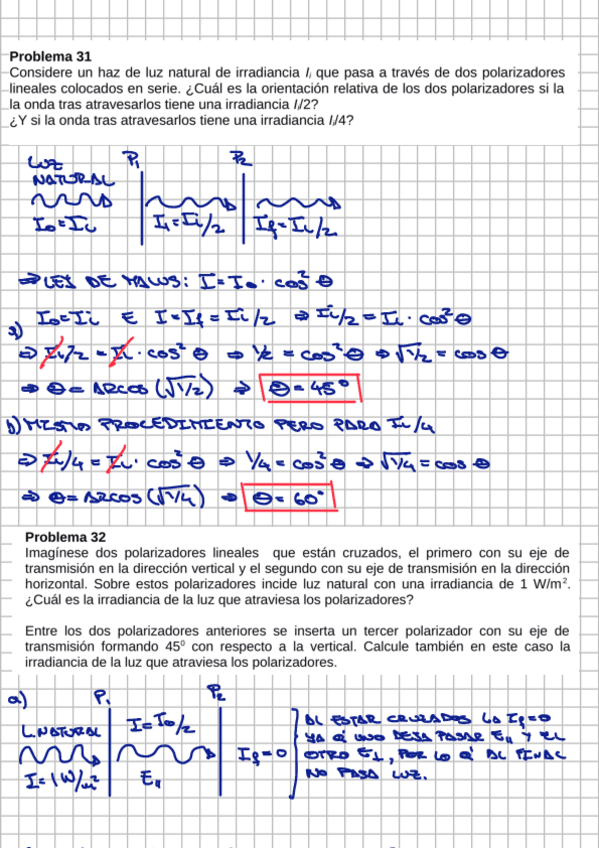 Problema 31
Considere un haz de luz natural de irradiancia Iᵢ que pasa a través de dos polarizadores
lineales colocados en serie. ¿Cuál es la orientación relativa de los dos polarizadores si la
la onda tras atravesarlos tiene una irradiancia Iᵢ/2?
¿Y si la onda tras atravesarlos tiene una irradiancia Iᵢ/4?
LUZ NATURAL P₁ P₂
I₀=Iᵢ I₁=Iᵢ/2 If=Iᵢ/2
⇒ LEY DE MALUS: I = I₀ · cos² θ
a) I₀=Iᵢ E I=If=Iᵢ/2 ⇒ Iᵢ/2 = Iᵢ · cos² θ
⇒ Iᵢ/2 = Iᵢ · cos² θ ⇒ 1/2 = cos² θ ⇒ √1/2 = cos θ
⇒ θ = ARCOS (√1/2) ⇒ θ = 45°
b) MISMO PROCEDIMIENTO PERO PARA Iᵢ/4
⇒ Iᵢ/4 = Iᵢ · cos² θ ⇒ 1/4 = cos² θ ⇒ √1/4 = cos θ
⇒ θ = ARCOS (√1/4) ⇒ θ = 60°
Problema 32
Imagínese dos polarizadores lineales que están cruzados, el primero con su eje de
transmisión en la dirección vertical y el segundo con su eje de transmisión en la dirección
horizontal. Sobre estos polarizadores incide luz natural con una irradiancia de 1 W/m².
¿Cuál es la irradiancia de la luz que atraviesa los polarizadores?
Entre los dos polarizadores anteriores se inserta un tercer polarizador con su eje de
transmisión formando 45⁰ con respecto a la vertical. Calcule también en este caso la
irradiancia de la luz que atraviesa los polarizadores.
a) P₁ P₂
L.NATURAL I=I₀/2
I=1W/m² E₁₁ If=0
AL ESTAR CRUZADOS LA If=0
YA Q' UNO DEJA PASAR E₁₁ Y EL
OTRO E⊥, POR LO Q' AL FINAL
NO PASA LUZ.